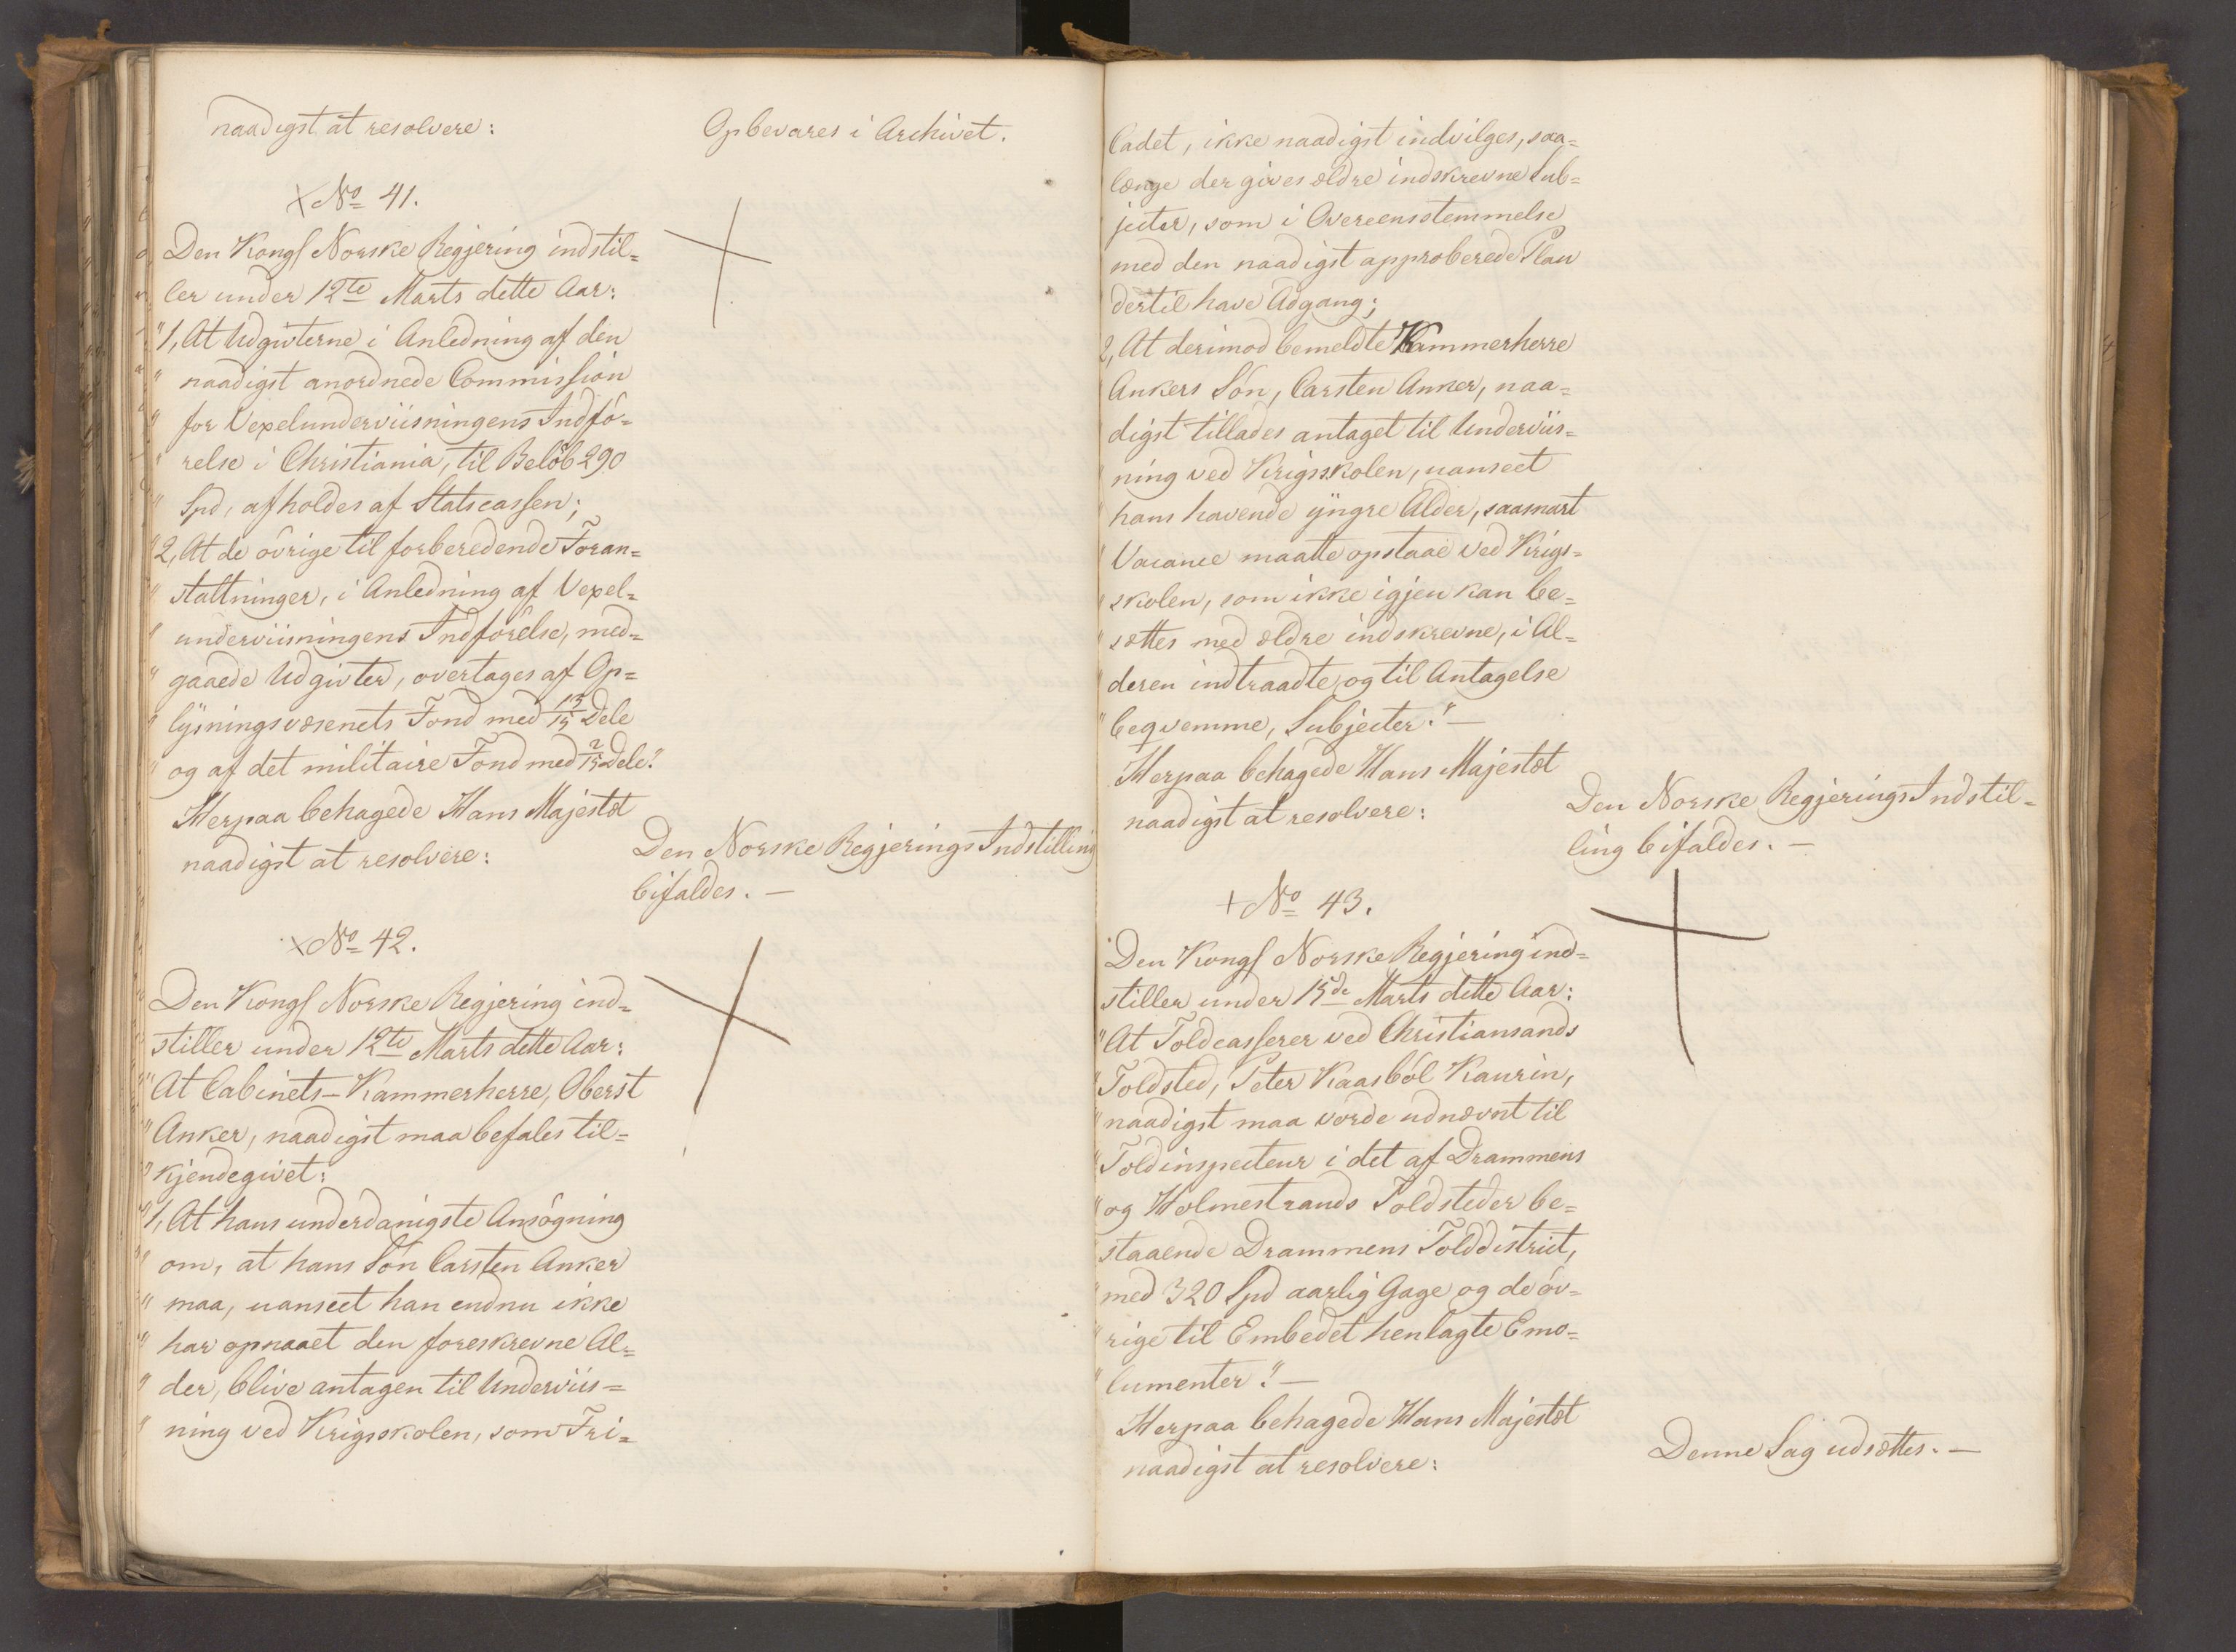 naadigst at resolvere:
Opbevares i Archivet.
No 41.
Den Kongl Norske Regjering indstil=
ler under 12te Marts dette Aar:
"1, At Udgivterne i Anledning af den
" naadigst anordnede Commission
" for Vexelunderviisningens Indfö=
" relse i Christiania, til Belöb 290
" Spd, afholdes af Statscassen;
"2, At de övrige til forberedende Foran=
" staltninger, i Anledning af Vexel=
" underviisningens Indförelse, med=
" gaaede Udgivter, overtages af Op=
" lysningsvæsenets Fond med 13/15 Dele
" og af det militaire Fond med 2/15 Dele."
Herpaa behagede Hans Majestæt
naadigst at resolvere:
Den Norske Regjerings Indstilling
bifaldes. —
No 42.
Den Kongl Norske Regjering ind=
stiller under 12te Marts dette Aar:
"At Cabinets-Kammerherre, Oberst
"Anker, naadigst maa befales til=
"kjendegivet:
"1, At hans underdanigste Ansögning
" om, at hans Sön Carsten Anker
" maa, uanseet han endnu ikke
" har opnaaet den foreskrevne Al=
" der, blive antagen til Underviis=
" ning ved Krigsskolen, som Fri=
Cadet, ikke naadigst indvilges, saa=
længe der gives ældre indskrevne Sub=
jecter, som i Overeensstemmelse
med den naadigst approberede Plan
dertil have Adgang;
2, At derimod bemeldte Kammerherre
Ankers Sön, Carsten Anker, naa=
digst tillades antaget til Underviis=
ning ved Krigsskolen, uanseet
hans havende yngre Alder, saasnart
Vacance maatte opstaae ved Krigs=
skolen, som ikke igjen kan be=
sættes med ældre indskrevne, i Al=
deren indtraadte, og til Antagelse
"beqvemme, Subjecter." —
Herpaa behagede Hans Majestæt
naadigst at resolvere:
Den Norske Regjerings Indstil=
ling bifaldes. —
No 43.
Den Kongl Norske Regjering ind=
stiller under 15de Marts dette Aar:
"At Toldcasserer ved Christiansands
"Toldsted, Peter Kaasböl Kaurin,
"naadigst maa vorde udnævnt til
"Toldinspecteur i det af Drammens
"og Holmestrands Toldsteder be=
"staaende Drammens Tolddistrict,
"med 320 Spd aarlig Gage og de öv=
"rige til Embedet henlagte Emo=
"lumenter." —
Herpaa behagede Hans Majestæt
naadigst at resolvere:
Denne Sag udsættes. —